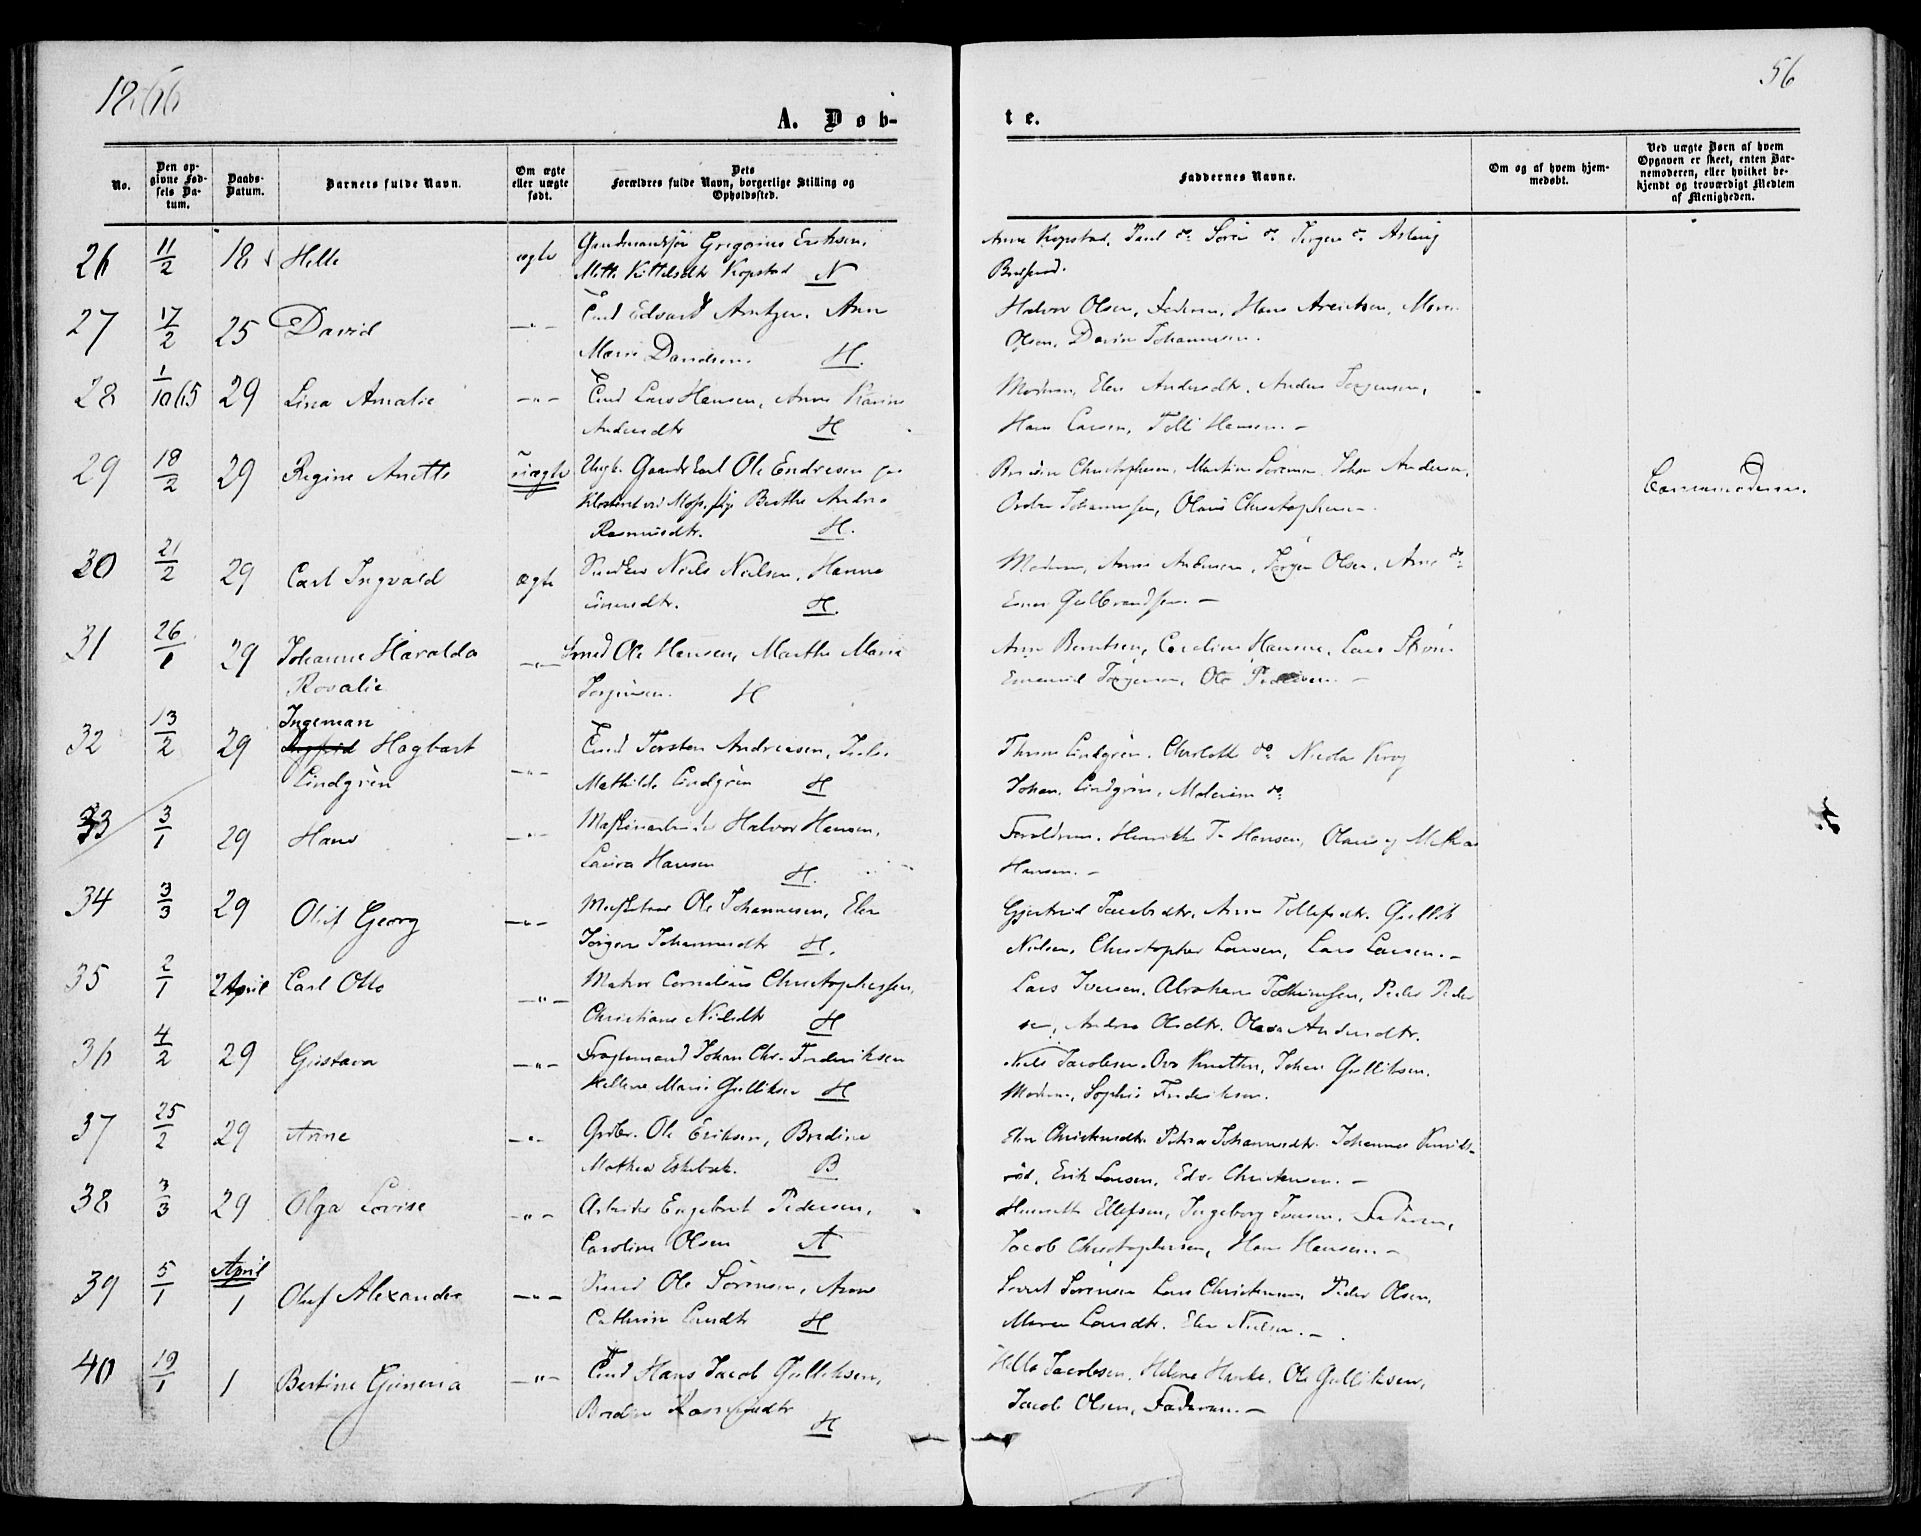 1866
56
A. Døb-
te.
No.
Den op-
givne Fød-
sels Da-
tum.
Daabs-
Datum.
Barnets fulde Navn.
Om ægte
eller uægte
født.
Dets
Forældres fulde Navn, borgerlige Stilling og
Opholdssted.
Faddernes Navne.
Om og af hvem hjem-
medøbt.
Ved uægte Børn af hvem
Opgaven er skeet, enten Bar-
nemoderen, eller hvilket be-
kjendt og troværdigt Medlem
af Menigheden.
26 11/2 18 Helle ægte Gregorius Eriksen,
Mette Kittelsdtr Kopstad N
Anne Kopstad, Paul do Søren do Jørgen do Aslaug
27 17/2 25 David -"- Edvard Arntzen, Anne
Marie Davidsen. H.
Halvor Olsen, Faderen, Hans Arentsen, Maren
Olsen, Davine Johannesen.
28 1/10 65 29 Lina Amalie -"- Lars Hansen, Anne Karine
Andersdtr H
Moderen, Elen Andersdtr, Anders Jørgensen,
Hans Larsen, Hansen. -
29 18/2 29 Regine Anette uægte Ungk. Gaardb. Ole Endresen
ved Moss, Pige Berthe Andrea
Rasmusdtr. H.
Christophersen, Martin Sørensen, Johan Andersen,
Johannessen, Olaus Christophersen -
Barnemoderen.
30 21/2 29 Carl Ingvald ægte Snedker Niels Nielsen, Hanne
H.
Moderen, Anne Andersen, Jørgen Olsen, Anne do
Gulbrandsen. -
31 26/1 29 Johanne Haralda -"- Smed Ole Hansen, Marthe Marie
Rosalie
Jørgensen. H
Anne Berntsen, Caroline Hansen, Lars
Emanuel Jørgensen, Ole Pedersen. -
32 13/2 29 Ingeman
Hagbart
Lindgrén
-"- Torsten Andreasen,
Mathilde Lindgrén H
Lindgrén, Charlotte do Nicolai Krog
Johan Lindgrén, do
33 3/1 29 Hans -"- Halvor Hansen,
Laura Hansen H.
Forældrene, Henrikke T. Hansen, Olaus og
Hansen. -
34 3/3 29 Oluf Georg -"- Ole Johannesen, Elen
Jørgine Johannesdtr H.
Gjertrud Jacobsdtr, Anne Tollefsdtr. Gullik
Nielsen, Christopher Larsen, Lars Larsen. -
35 2/1 2 April Carl Otto -"- Matros Cornelius Christophersen,
Christiane Nielsdtr H
Lars Iversen, Abraham Peder Peder
sen, Andrea Olsdtr. Andersdtr.
36 4/2 29 Gustava -"- Fragtemand Johan Chr. Frederiksen
Hellene Marie Gulliksen H
Niels Jacobsen, Johan Gulliksen,
Moderen, Sophie Frederiksen.
37 25/2 29 Anne -"- Grdbr. Ole Eriksen, Bredine
Mathea B
Elen Christensdtr. Petrea Johannesdtr. Johannes
rød, Erik Larsen, Edv. Christensen. -
38 3/3 29 Olga Lovise -"- Arbeider Engebret Pedersen,
Caroline Olsen A
Henriette Ellefsen, Ingeborg Iversen, Faderen,
Jacob Christophersen, Hans Hansen. -
39 5/1 April
1 Oluf Alexander -"- Ole Sørensen, Anne
Cathrine H
Sivert Sørensen Lars Christensen, Peder Olsen,
Maren Larsdtr. Elen Nielsen. -
40 19/1 1 Bertine Guneria -"- Hans Jacob Gulliksen,
H
Helle Jacobsen, Helene Ole Gulliksen,
Jacob Olsen, Faderen. -